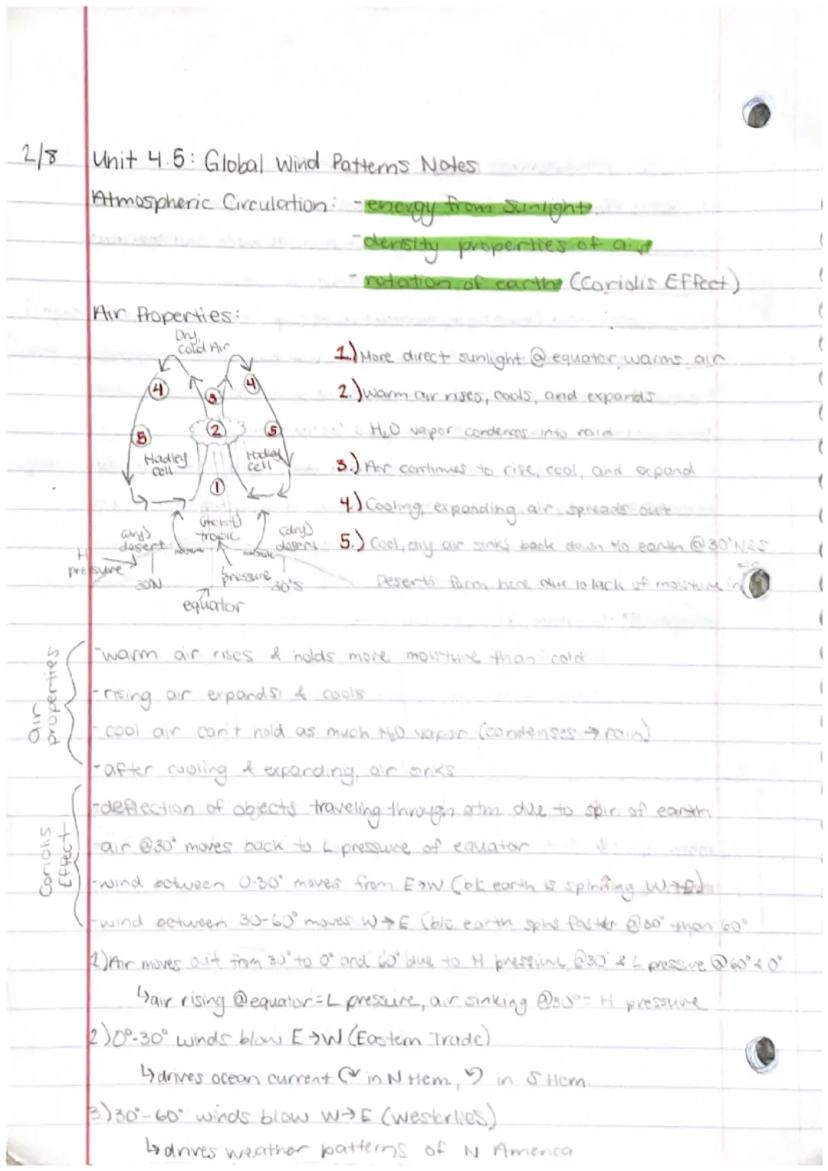 2/8 Unit 4.5: Global Wind Patterns Notes
Atmospheric Circulation: -energy from sunlight
-density properties of air
-rotation of earth (Coriolis Effect)
Air Properties:
Dry, Cold Air
4
4
3
5
2
5
Hadley cell
Hadley cell
1
(dry) desert
(moist) tropic
(dry) desert
moisture
H pressure
pressure
30N
30°S
equator
1.) More direct sunlight @ equator warms air
2.) Warm air rises, cools, and expands
H₂O vapor condenses into rain
3.) Air continues to rise, cool, and expand
4.) Cooling, expanding air spreads out
5.) Cool, dry air sinks back down to earth @ 30°N&S
Deserts form here due to lack of moisture in air
air properties
-warm air rises & holds more moisture than cold
-rising air expands & cools
-cool air can't hold as much H₂O vapor (condenses → rain)
-after cooling & expanding, air sinks
Coriolis Effect
-deflection of objects traveling through atm due to spin of earth
-air @30° moves back to L pressure of equator
-wind between 0-30° moves from E→W (b/c earth is spinning W→E)
-wind between 30-60° moves W→E (b/c earth spins faster @30° than 60°
1) Air moves out from 30° to 0° and 60° due to H pressure @30° & L pressure @60° & 0°
↳air rising @equator = L pressure, air sinking @30° = H pressure
2) 0°-30° winds blow E→W (Eastern Trade)
↳drives ocean current ↻ in N Hem, ↺ in S Hem.
3.) 30°-60° winds blow W→E (Westerlies)
↳drives weather patterns of N America